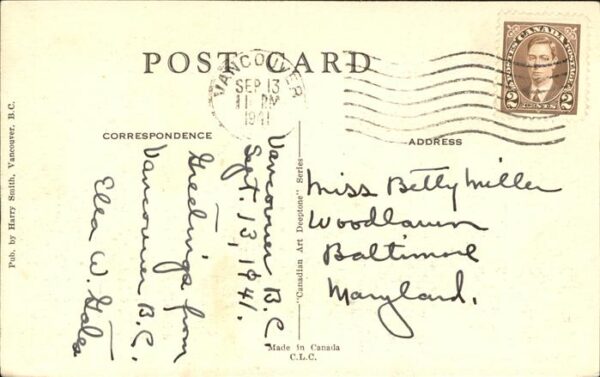 POST CARD
VANCOUVER
SEP 13
11 PM
1941
POSTES CANADA POSTAGE
2 CENTS 2
CORRESPONDENCE
ADDRESS
Vancouver B.C.
Sept. 13, 1941.
Greetings from
Vancouver B.C.
Ella W.
Miss Betty Miller
Woodlawn
Baltimore
Maryland.
Pub. by Harry Smith, Vancouver, B.C.
"Canadian Art Deeptone" Series
Made in Canada
C.L.C.